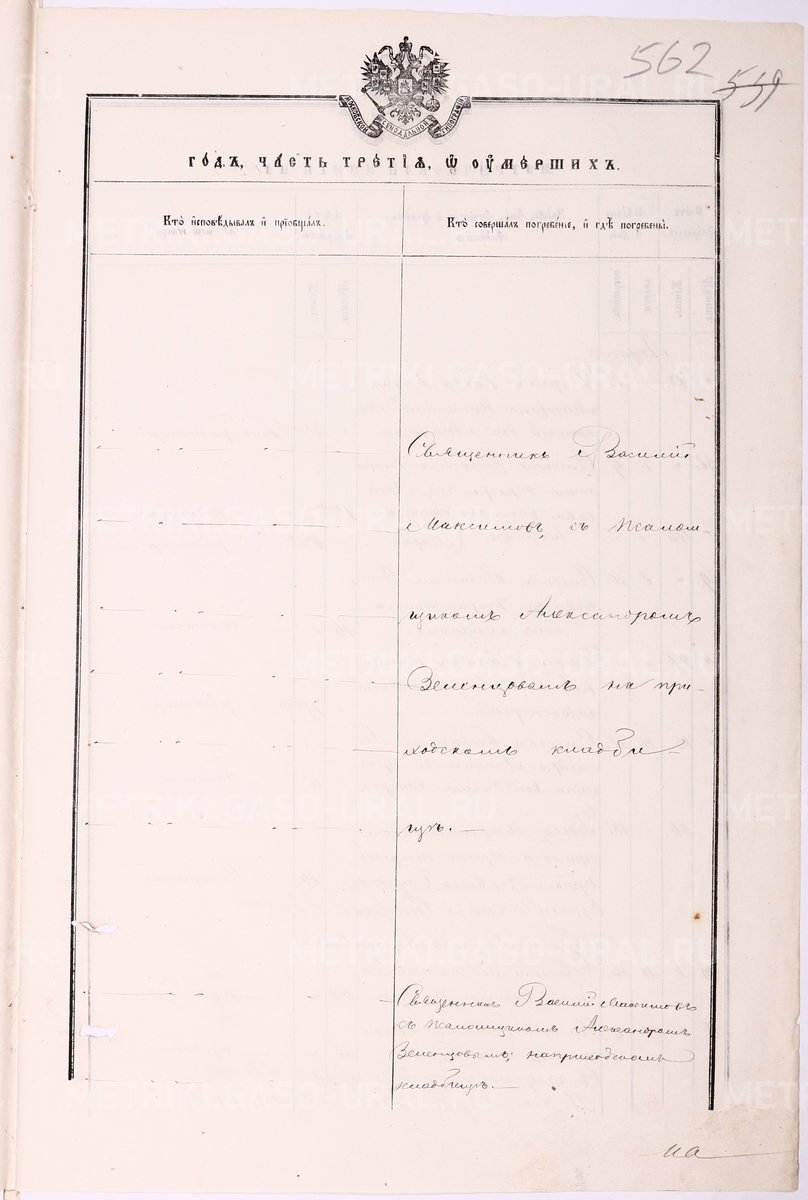 562 559
годъ, часть третїѧ, ѿ оумершихъ.
Кто исповѣдывалъ и прїобщалъ.
Кто совершалъ погребенїе, и гдѣ погребены.
Священникъ Василій
Максимовъ, съ псалом-
щикомъ Александромъ
Зеленцовымъ на при-
ходскомъ кладби-
щѣ.
Священникъ Василій Максимовъ
съ псаломщикомъ Александромъ
Зеленцовымъ, на приходскомъ
кладбищѣ.
на
METRIKI.GASO-URAL.RU